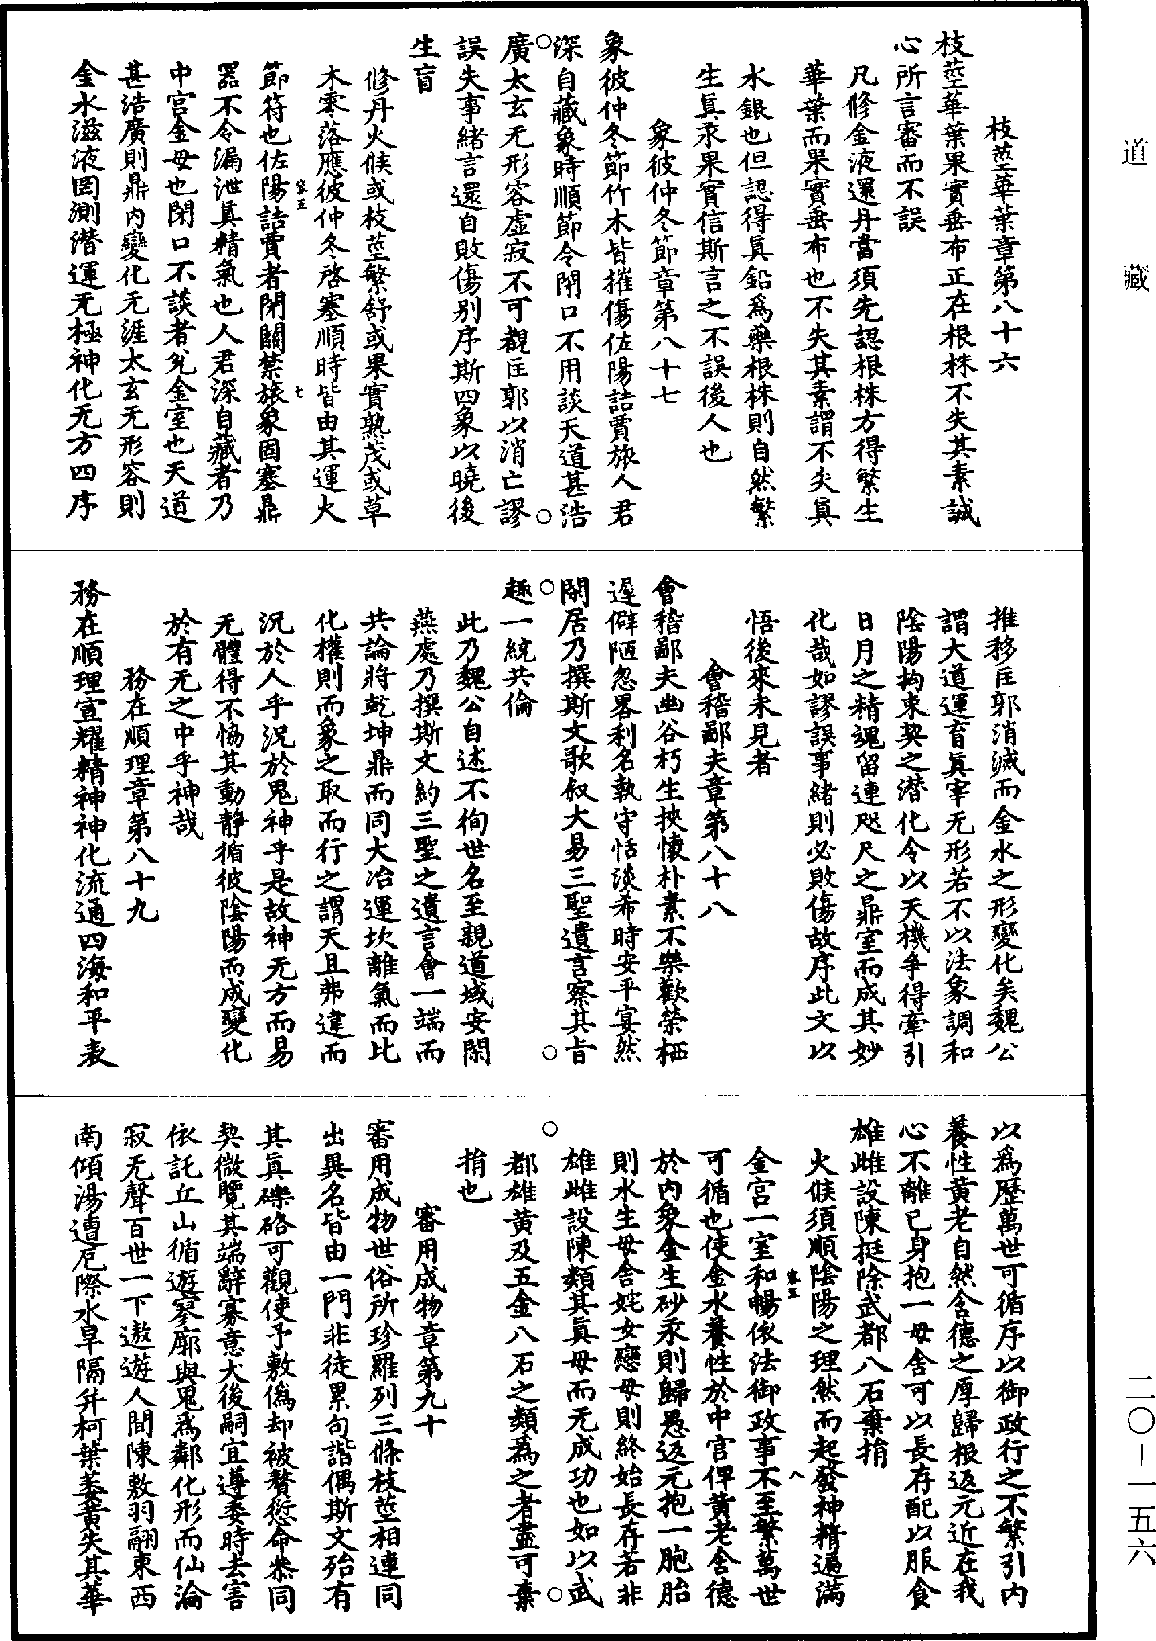 道藏
枝莖華葉章第八十六
枝莖華葉果實垂布正在根株不失其素誠
心所言審而不誤
凡修金液還丹當須先認根株方得繁生
華葉而果實垂布也不失其素謂不失真
水銀也但認得真鉛為藥根株則自然繁
生真汞果實信斯言之不誤後人也
象彼仲冬節章第八十七
象彼仲冬節竹木皆摧傷佐陽詰賈旅人君
深自藏象時順節令閉口不用談天道甚浩
廣太玄无形容虛寂不可觀匡郭以消亡謬
誤失事緒言還自敗傷别序斯四象以曉後
生盲
修丹火候或枝莖繁舒或果實熟茂或草
木零落應彼仲冬啓塞順時皆由其運火
容五 七
節符也佐陽詰賈者閉關禁旅象固塞鼎
器不令漏泄真精氣也人君深自藏者乃
中宮金母也閉口不談者兌金室也天道
甚浩廣則鼎內變化无涯太玄无形容則
金水滋液罔測潛運无極神化无方四序
推移匡郭消滅而金水之形變化矣魏公
謂大道運育真宰无形若不以法象調和
陰陽拘束契之潛化令以天機爭得牽引
日月之精魂留連咫尺之鼎室而成其妙
化哉如謬誤事緒則必敗傷故序此文以
悟後來未見者
會稽鄙夫章第八十八
會稽鄙夫幽谷朽生挾懷朴素不樂歡榮栖
遲僻陋忽畧利名執守恬淡希時安平宴然
閑居乃撰斯文歌敘大易三聖遺言察其旨
趣一統共倫
此乃魏公自述不徇世名至親道域安閑
燕處乃撰斯文約三聖之遺言會一端而
共論將乾坤鼎而同大冶運坎離氣而比
化權則而象之取而行之謂天且弗違而
況於人乎況於鬼神乎是故神无方而易
无體得不惕其動靜循彼陰陽而成變化
於有无之中乎神哉
務在順理章第八十九
務在順理宣耀精神神化流通四海和平表
以為歷萬世可循序以御政行之不繁引內
養性黃老自然含德之厚歸根返元近在我
心不離己身抱一毋舍可以長存配以服食
雄雌設陳挺除武都八石棄捐
火候須順陰陽之理然而起發神精遍滿
容五 八
金宮一室和暢依法御政事不至繁萬世
可循也使金水養性於中宮俾黃老含德
於內象金生砂汞則歸愚返元抱一胞胎
則水生母舍姹女戀母則終始長存若非
雄雌設陳類其真母而无成功也如以武
都雄黃及五金八石之類為之者盡可棄
捐也
審用成物章第九十
審用成物世俗所珍羅列三條枝莖相連同
出異名皆由一門非徒累句諧偶斯文殆有
其真礫硌可觀使予敷偽却被贅愆命參同
契微覽其端辭寡意大後嗣宜遵委時去害
依託丘山循遊寥廓與鬼為鄰化形而仙淪
寂无聲百世一下遨遊人間陳敷羽翮東西
南傾湯遭厄際水旱隔并柯葉萎黃失其華
二〇—一五六